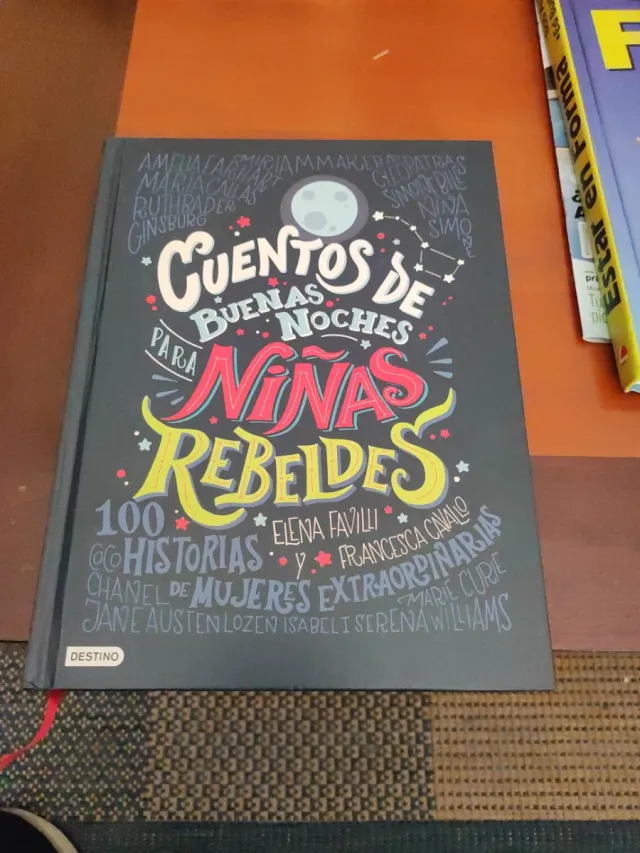 AMELIA EARHART MIRIAM MAKEBA CLEOPATRA
MARIA CALLAS
SIMONE BILES
RUTH BADER
GINSBURG
NINA
SIMONE
CUENTOS DE
BUENAS
NOCHES
PARA
NIÑAS
REBELDES
100
HISTORIAS
DE MUJERES EXTRAORDINARIAS
ELENA FAVILLI
Y FRANCESCA CAVALLO
COCO
CHANEL
MARIE CURIE
JANE AUSTEN LOZEN ISABEL I SERENA WILLIAMS
DESTINO
Estar en Forma